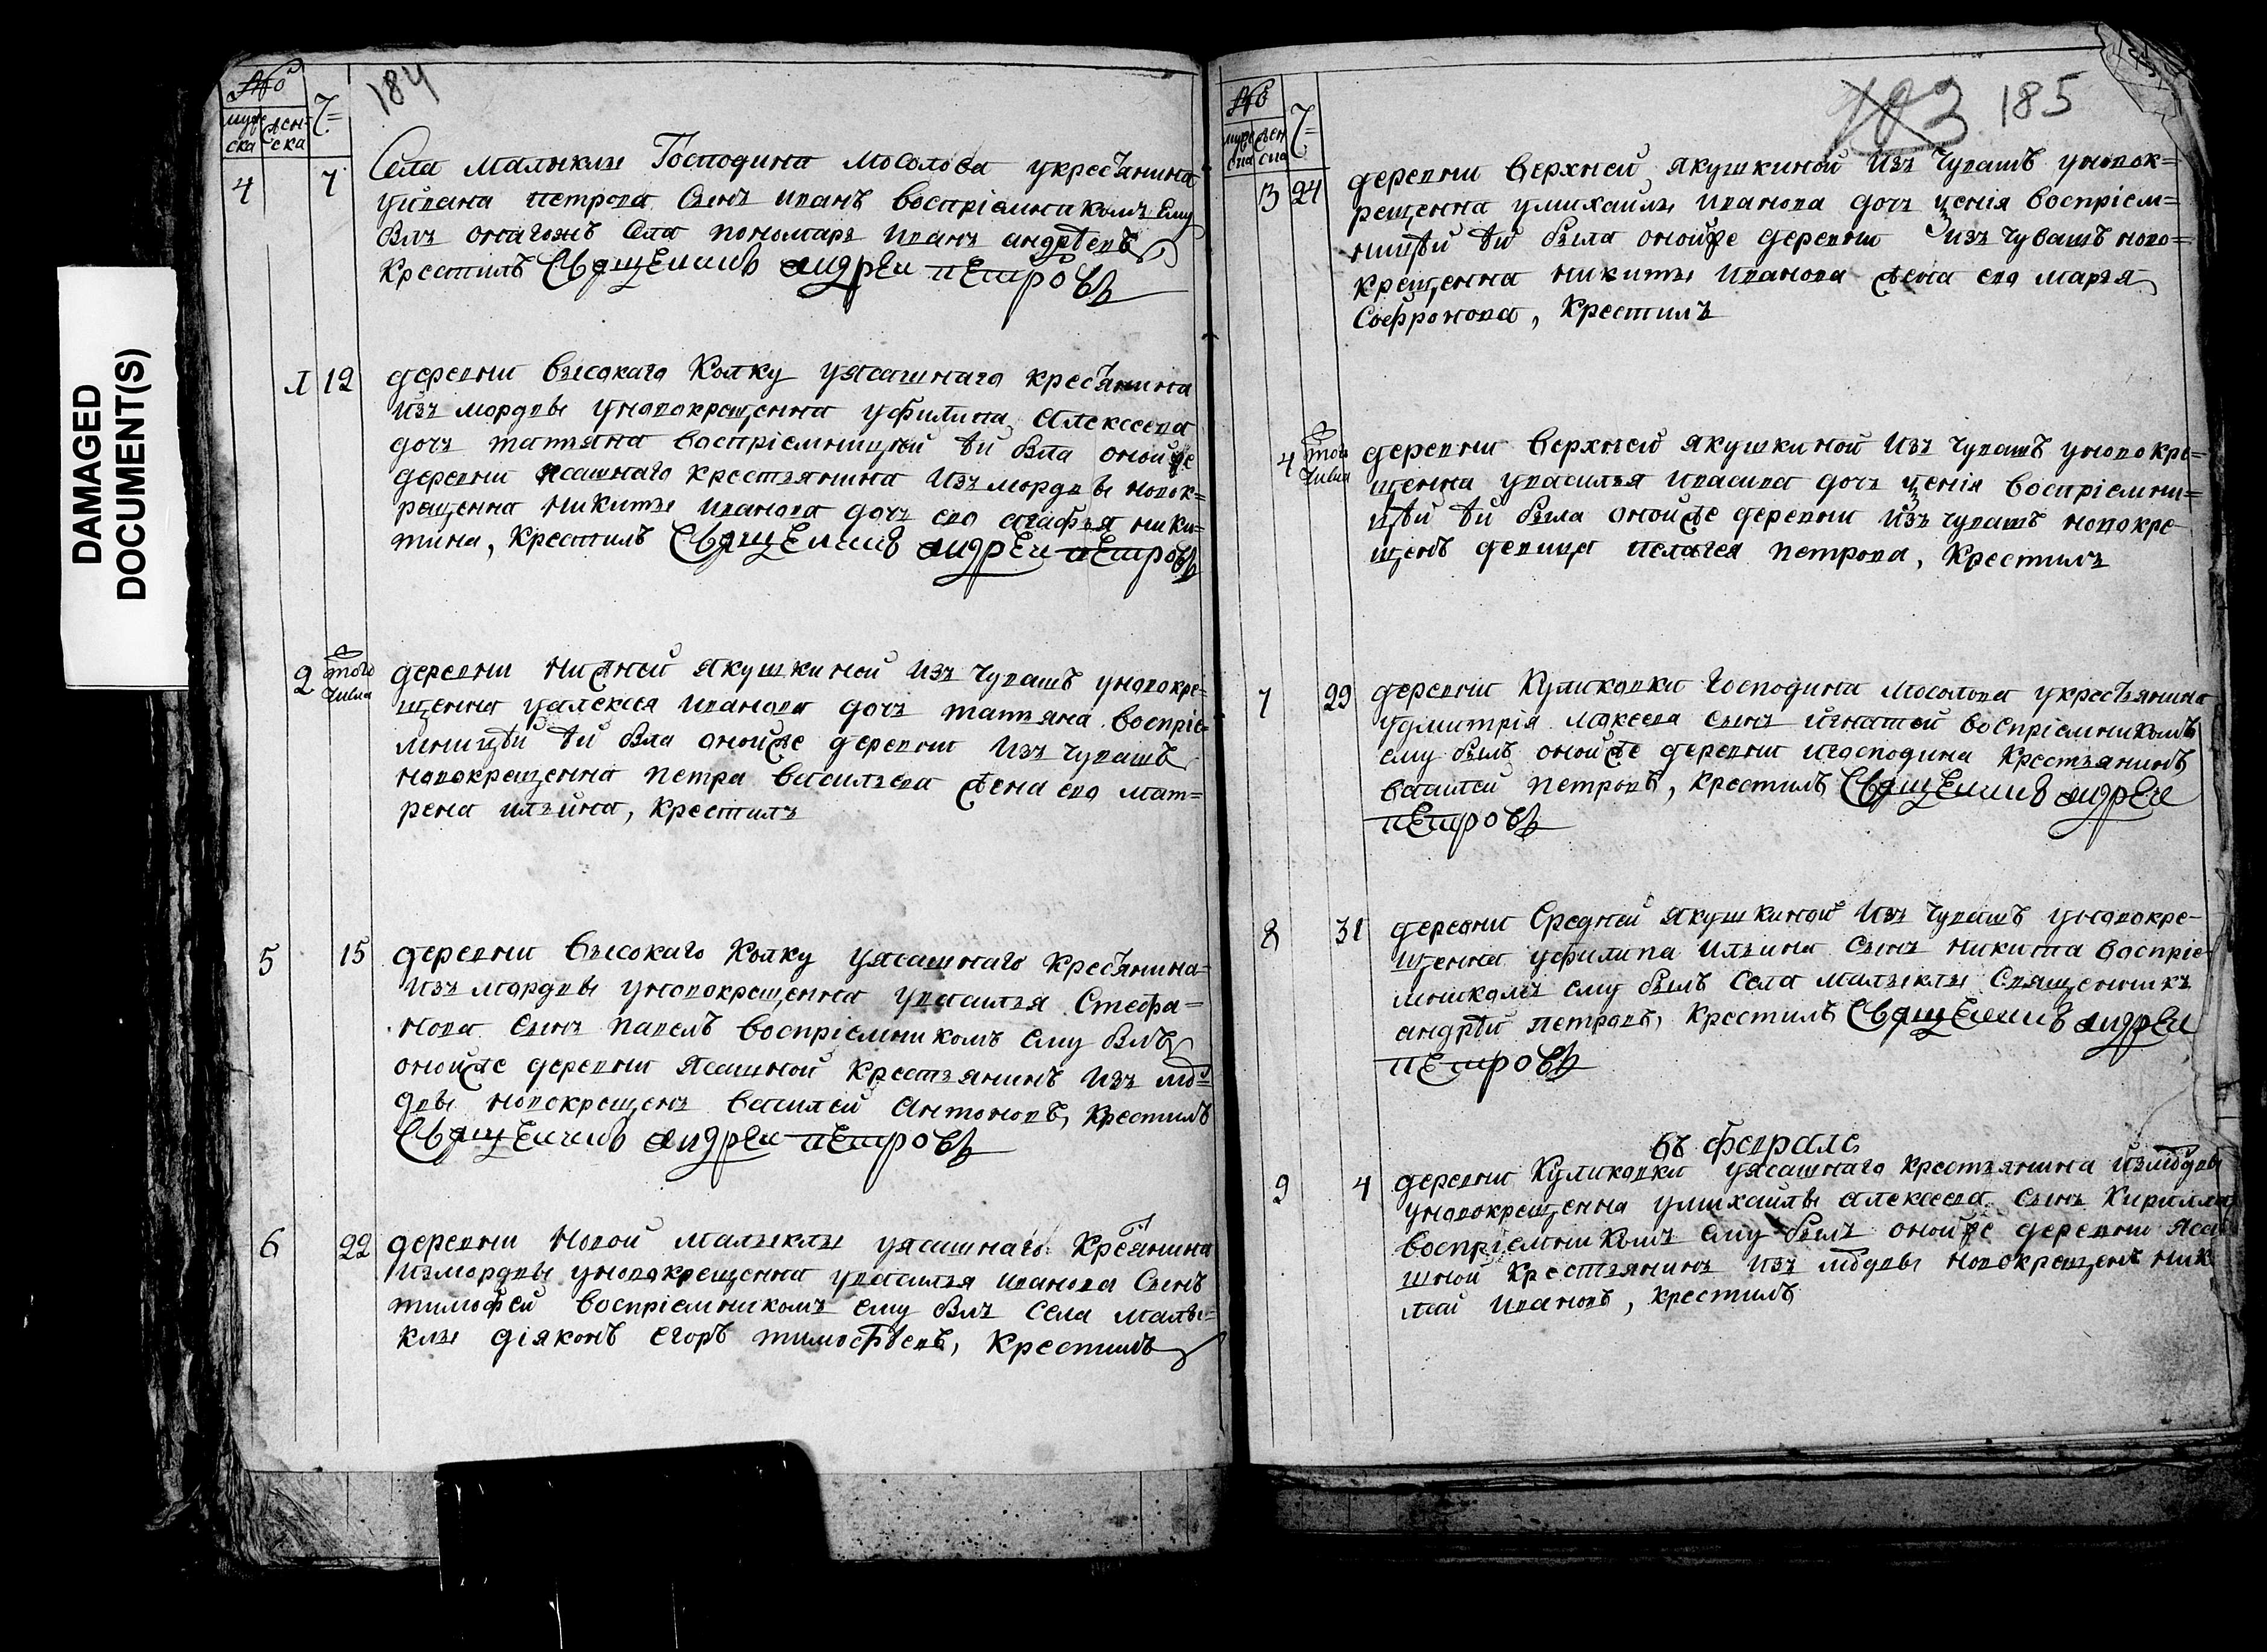 DAMAGED
DOCUMENT(S)
184
№
муже
ска
жен=
ска
Ч=
4
7
Села Малыклы Господина Мосолова укрестьянина
уивана петрова Сынъ иванъ восприемникомъ Ему
былъ онагожъ Села пономарь иванъ андрѣевъ
Крестилъ Священникъ андреи пЕтровъ
1
12
деревни высокаго Колку уясашнаго крестьянина
изъ мордвы уновокрещенна уфилипа Алексеева
дочь татьяна восприемницѣй ѣй была онойже
деревни ясашнаго крестьянина изъ мордвы новок=
рещенна никиты иванова дочь ево агафья ники=
тина, крестилъ Священникъ андреи пЕтровъ
2
того
числа
деревни нижней якушкиной изъ чувашъ уновокре=
щенна уалексея иванова дочь татьяна восприе=
мницѣй ѣй была онойже деревни изъ чувашъ
новокрещенна петра васильева жена ево мат=
рена ильина, крестилъ
5
15
деревни высокаго Колку уясашнаго крестьянина=
изъ мордвы уновокрещенна увасилья Стефа=
нова Сынъ павелъ восприемникомъ Ему былъ
онойже деревни ясашной Крестьянинъ изъ мор
двы новокрещенъ василей Антоновъ, крестилъ
Священникъ андреи пЕтровъ
6
22
деревни Новой малыклы уясашнаго Крестьянина
измордвы уновокрещенна увасилья иванова Сынъ
тимофей восприемникомъ ему былъ Села малы=
клы дияконъ егоръ тимофѣевъ, Крестилъ
183 185
№
муже
ска
жен
ска
Ч=
3
24
деревни верхней якушкиной изъ чувашъ уновок=
рещенна умихаилы иванова дочь ксения восприем=
ницѣй ѣй была онойже деревни изъ чувашъ ново=
крещенна никиты иванова жена ево марья
Софронова, крестилъ
4
того
числа
деревни верхней якушкиной изъ чувашъ уновокре=
щенна увасилья ивасива дочь ксения восприемни=
цѣй ѣй была онойже деревни изъ чувашъ новокре
щенъ девица пелагея петрова, Крестилъ
7
29
деревни Куликовки господина мосолова укрестьянина
удмитрия мокеева сынъ игнатей восприемникомъ
ему былъ онойже деревни игосподина Крестьянинъ
василей петровъ, крестилъ Священникъ андреи
пЕтровъ
8
31
деревни Средней якушкиной изъ чувашъ уновокре-
щенна уфилипа ильина сынъ никита восприе
мникомъ ему былъ села малыклы Священникъ
андрѣй петровъ, Крестилъ Священникъ андреи
пЕтровъ
въ феврале
9
4
деревни Куликовки уясашнаго крестьянина измордвы
уновокрещенна умихайлы алексеева сынъ Кирилла
восприемникомъ ему былъ онойже деревни яса
шной крестьянинъ изъ мордвы новокрещенъ ник
лай ивановъ, крестилъ